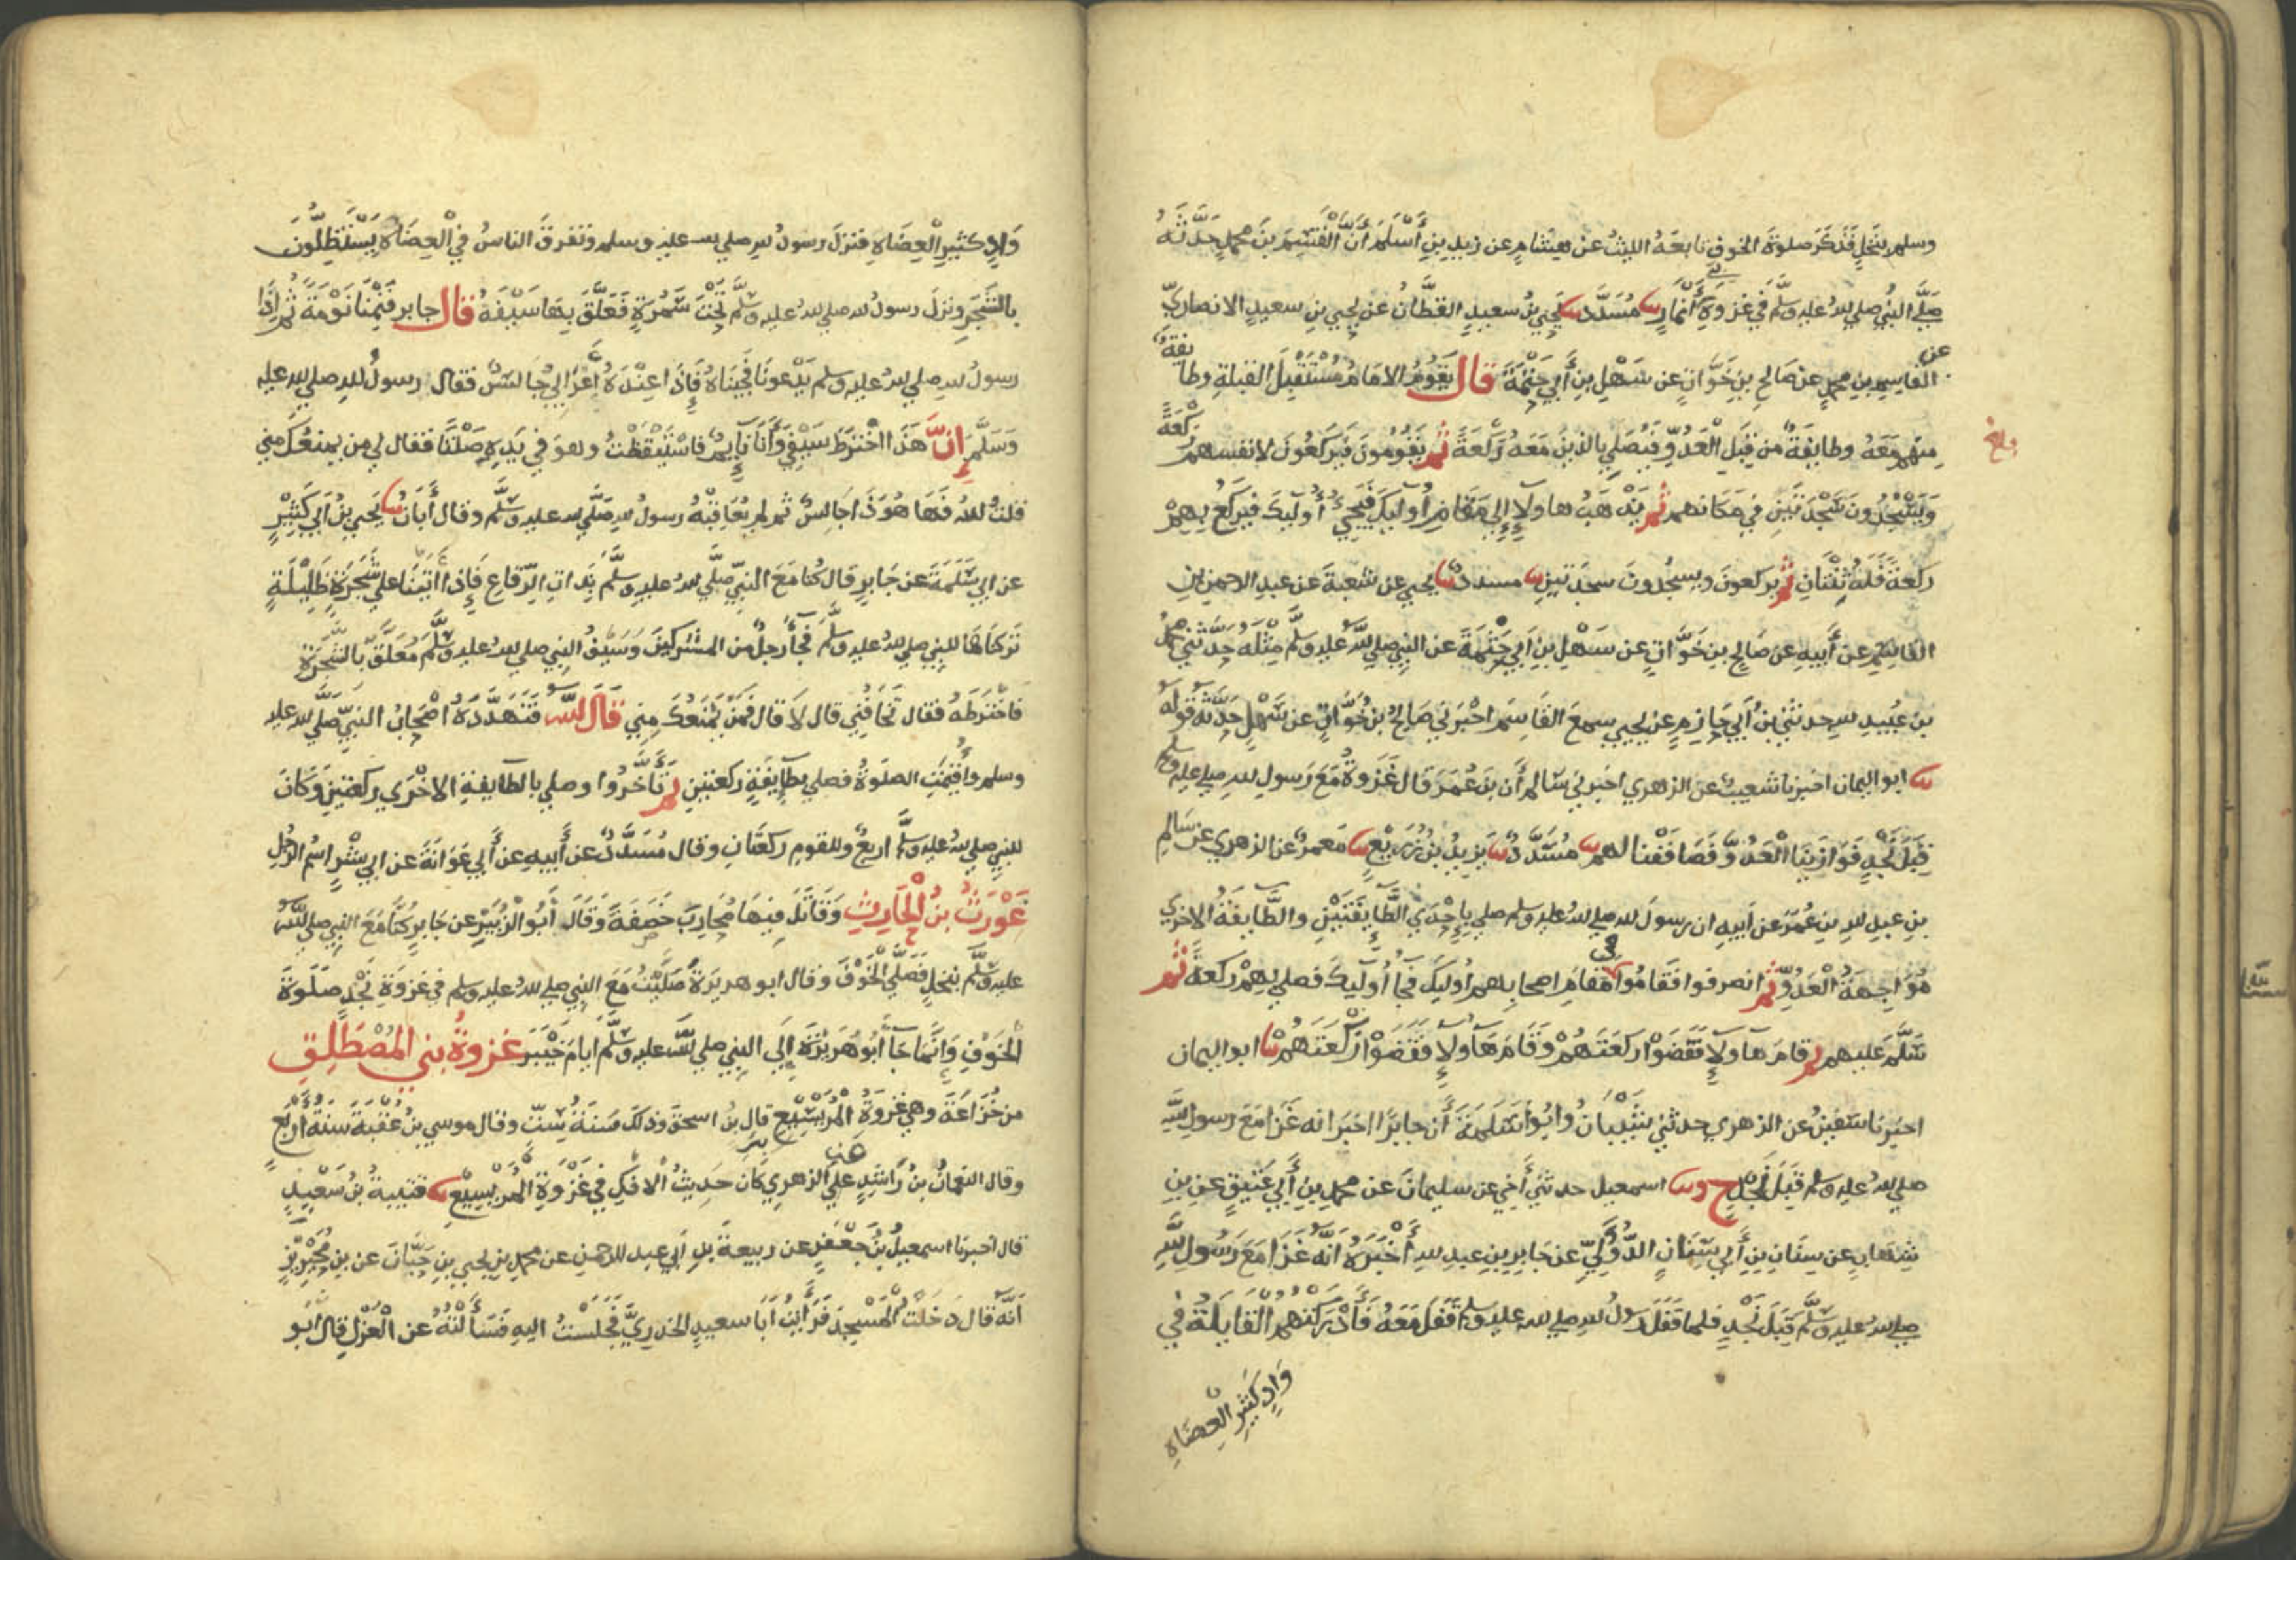 وسلم بنَخْلٍ فَذَكَرَ صلوةَ الخوف تابعَهُ الليثُ عن هشامٍ عن زيدِ بنِ أَسْلَمَ أَنَّ الْقٰسِمَ بنَ محمدٍ حَدَّثَهُ
صَلَّى النبيُّ صلى لله عليه وسلَّم في غزوَةِ بَنِي أَنْمَارٍ ثنا مُسَدَّد ثنا يَحيى بنُ سعيدٍ القطَّانُ عن يحيى بنِ سعيدٍ الانصاريّ
عن القاسِمِ بنِ محمدٍ عن صَالحِ بنِ خَوَّاتٍ عن سَهْلِ بنِ أَبِي حَثْمَةَ قال يَقُومُ الامَامُ مُسْتَقْبِلَ القبلةِ وطايفةٌ
منهم مَعَهُ وطايفةٌ من قِبَلِ الْعَدُوِّ فَيُصَلِي بالذينَ مَعَهُ رَكْعَةً ثم يَقُومُونَ فَيَركَعُونَ لانفسهم رَكْعَةً
بلغ
وَيَسْجُدُونَ سَجْدَتَيْنِ في مَكَانهم ثم يَذْهَبُ هاولآءِ إِلى مَقَامِ أُولٓيكَ فيجيُ أُولٓيكَ فيركعُ بِهِمْ
ركعةً فَلَهُ ثِنْتَانِ ثم يركعونَ ويسجُدُونَ سجدَتينِ ثنا مسددٌ ثنا يحيى عن شعبةَ عن عبدِ الرحمنِ بنِ
القاسِمِ عن أَبيهِ عن صَالحِ بن خَوَّاتٍ عن سَهْلِ بنِ أَبي حَثْمَةَ عن النبيِ صلى للهُ عليه وسلَّم مِثْلَهُ حَدَّثَني محمدُ
بنُ عُبيدِ للهِ حدثني بنُ أَبي حَازِمٍ عن يحيى سمعَ القَاسِمَ اخْبَرَني صَالحُ بنُ خَوَّاتٍ عن سَهْلٍ حَدَّثَهُ قولَهُ
ثنا ابو اليمان اخبرنا شعيبٌ عن الزهري اخبرني سَالمٌ أَن بنَ عُمَرَ قال غَزَوتُ مَعَ رَسولِ للهِ صلى عليه وسلم
قِبَلَ نَجْدٍ فَوَازَيْنَا الْعَدُوَّ فَصَافَفْنَا لهم ثنا مُسَدَّدٌ ثنا يَزيدُ بنُ زُرَيْعٍ ثنا مَعمرٌ عن الزهري عن سَالمِ
بنِ عبدِ للهِ بنِ عُمَرَ عن أَبيهِ ان رسولَ للهِ صلى للهُ عليه وسلم صلى بِإِحْدَى الطَّايفَتَيْنِ والطَّايفَةُ الاخرى
مُوَاجِهَةُ الْعَدُوِّ ثم انصرفوا فقَامُوا في مَقَامِ اصحابِهم اوليكَ فجآ أُولٓيكَ فصلى بِهِمْ ركعةً ثم
سَلَّمَ عليهم ثم قامَ هاولآءِ فَقَضَوْا ركعَتَهُمْ وَقَامَ هَاولآءِ فَقَضَوْا رَكْعَتَهُمْ ثنا ابو اليمان
اخبرنا شعيبٌ عن الزهري حدثني سِنَانُ وابُو سَلَمَةَ أَن جابرًا اخبَرَ انه غَزَا مَعَ رسولِ للهِ
صلى للهُ عليه وسلم قِبَلَ نَجْدٍ ح وثنا اسمعيل حدثني أَخِي عن سليمانَ عن محمدِ بنِ أَبي عَتيقٍ عن بنِ
شِهَابٍ عن سِنَانِ بنِ أَبي سِنَانٍ الدُّؤَليِّ عن جَابِرِ بنِ عبدِ للهِ أَخْبَرَهُ أَنَّهُ غَزَا مَعَ رَسُولِ للَّهِ
صلى للهُ عليه وسلَّم قِبَلَ نَجْدٍ فلما قَفَلَ رسولُ للهِ صلى لله عليه وسلم قَفَلَ مَعَهُ فَأَدْرَكَتْهُمُ الْقَايِلَةُ في
وَادٍ كثيرِ الْعِضَاهِ
وَادٍ كثيرِ الْعِضَاهِ فنزلَ رسولُ للهِ صلى لله عليه وسلم وتفرقَ الناسُ في الْعِضَاهِ يَسْتَظِلُّونَ
بالشَّجَرِ ونزلَ رسولُ لله صلى للهُ عليه وسلَّم تَحْتَ سَمُرَةٍ فَعَلَّقَ بِهَا سَيْفَهُ قال جابر فَنِمْنَا نَوْمَةً ثُمَّ إِذَا
رسولُ للهِ صلى للهُ عليه وسلم يَدْعونَا فجِيْنَاهُ فَإِذَا عِنْدَهُ أَعْرَابِيٌّ جَالسٌ فقال رسولُ للهِ صلى لله عليه
وَسَلَّمَ إِنَّ هَذَا اخْتَرَطَ سَيْفِي وَأَنَا نَايِمٌ فاسْتَيْقَظْتُ وهوَ في يَدِهِ صَلْتًا فقال لي من يمنعُكَ مني
قلتُ للهُ فَهَا هُوَ ذَا جَالِسٌ ثم لم يُعَاقِبْهُ رسولُ للهِ صلَّى لله عليه وسلَّم وقال أَبَانُ ثنا يَحيى بنُ أَبي كَثِيْرٍ
عن ابي سَلَمَةَ عن جَابرٍ قال كُنا مَعَ النبيِّ صَلَّى للهُ عليهِ وسلَّمَ بِذَاتِ الرّقَاعِ فَإِذا أَتَيْنَا على شَجَرَةٍ ظَلِيْلَةٍ
تَرَكْنَاهَا للنبيِ صلى للهُ عليه وسلَّمَ فجآ رجلٌ من المشركينَ وَسَيْفُ النبيِ صلى للهُ عليه وسَلَّمَ مُعَلَّقٌ بالشَّجَرَةِ
فَاخْتَرَطَهُ فقال تَخَافُنِي قال لَا قال فَمَنْ يَمْنَعُكَ مِنِي قَالَ للّهُ فَتَهَدَّدَهُ اصْحَابُ النبيِّ صَلَّى لله عليه
وسلم وأُقِيْمَتِ الصَلَوةُ فصلى بطَآيِفَةٍ ركعتينِ ثم تَأَخَّرُوا وصلى بالطَّايفةِ الاخْرى ركعتينِ وَكَانَ
للنبيِ صلى للهُ عليه وسلَّم اربعٌ وللقومِ ركعتَانِ وقال مُسَدَّدٌ عن أَبيهِ عن أَبي عَوَانَةَ عن ابي بِشْرٍ اسْمُ الرَّجُلِ
غَوْرَثُ بنُ الْحَارِثِ وَقَاتَلَ فِيْهَا مُحَارِبَ خَصَفَةَ وَقَالَ أَبُو الْزُبَيْرِ عن جَابرٍ كُنَّا مَعَ النبيِ صلى للّهُ
عليه وسَلَّم بنخلٍ فَصَلَّى الْخَوْفَ وَقال ابو هريرَةَ صَلَّيْتُ مَعَ النبيِ صلى للهُ عليه وسلم في غزوَةِ نَجْدٍ صَلَوةَ
الْخَوْفِ وَإِنَّمَا جَآ أَبُو هُرَيْرَةَ إِلى النبيِ صلى للّه عليه وسَلَّمَ أَيامَ خَيْبَرَ غزوةُ بني المُصْطَلِقِ
من خُزَاعَةَ وهي غَزوَةُ الْمُرَيْسِيْعِ قال بنُ اسحقَ وذلكَ سَنَةَ سِتٍّ وقال موسى بنُ عُقبَةَ سَنَةَ أَرْبَعٍ
وقال النعمَانُ بنُ رَاشِدٍ عن الزهري كان حَدِيثُ الافكِ في غَزْوَةِ الْمُرَيْسِيْعِ ثنا قتيبةُ بنُ سَعِيدٍ
قال اخبرنا اسمعيلُ بنُ جَعْفَرٍ عن ربيعةَ بنِ أَبي عبد للرحمنِ عن محمدِ بنِ يحيى بنِ حَبَّانَ عن بنِ مُحَيْرِيْزٍ
أَنَّهُ قال دَخَلْتُ الْمَسْجِدَ فَرَأَيْتُ أَبَا سعيدٍ الخدريَّ فَجَلَسْتُ اليهِ فَسَأَلْتُهُ عن الْعَزْلِ قال ابو